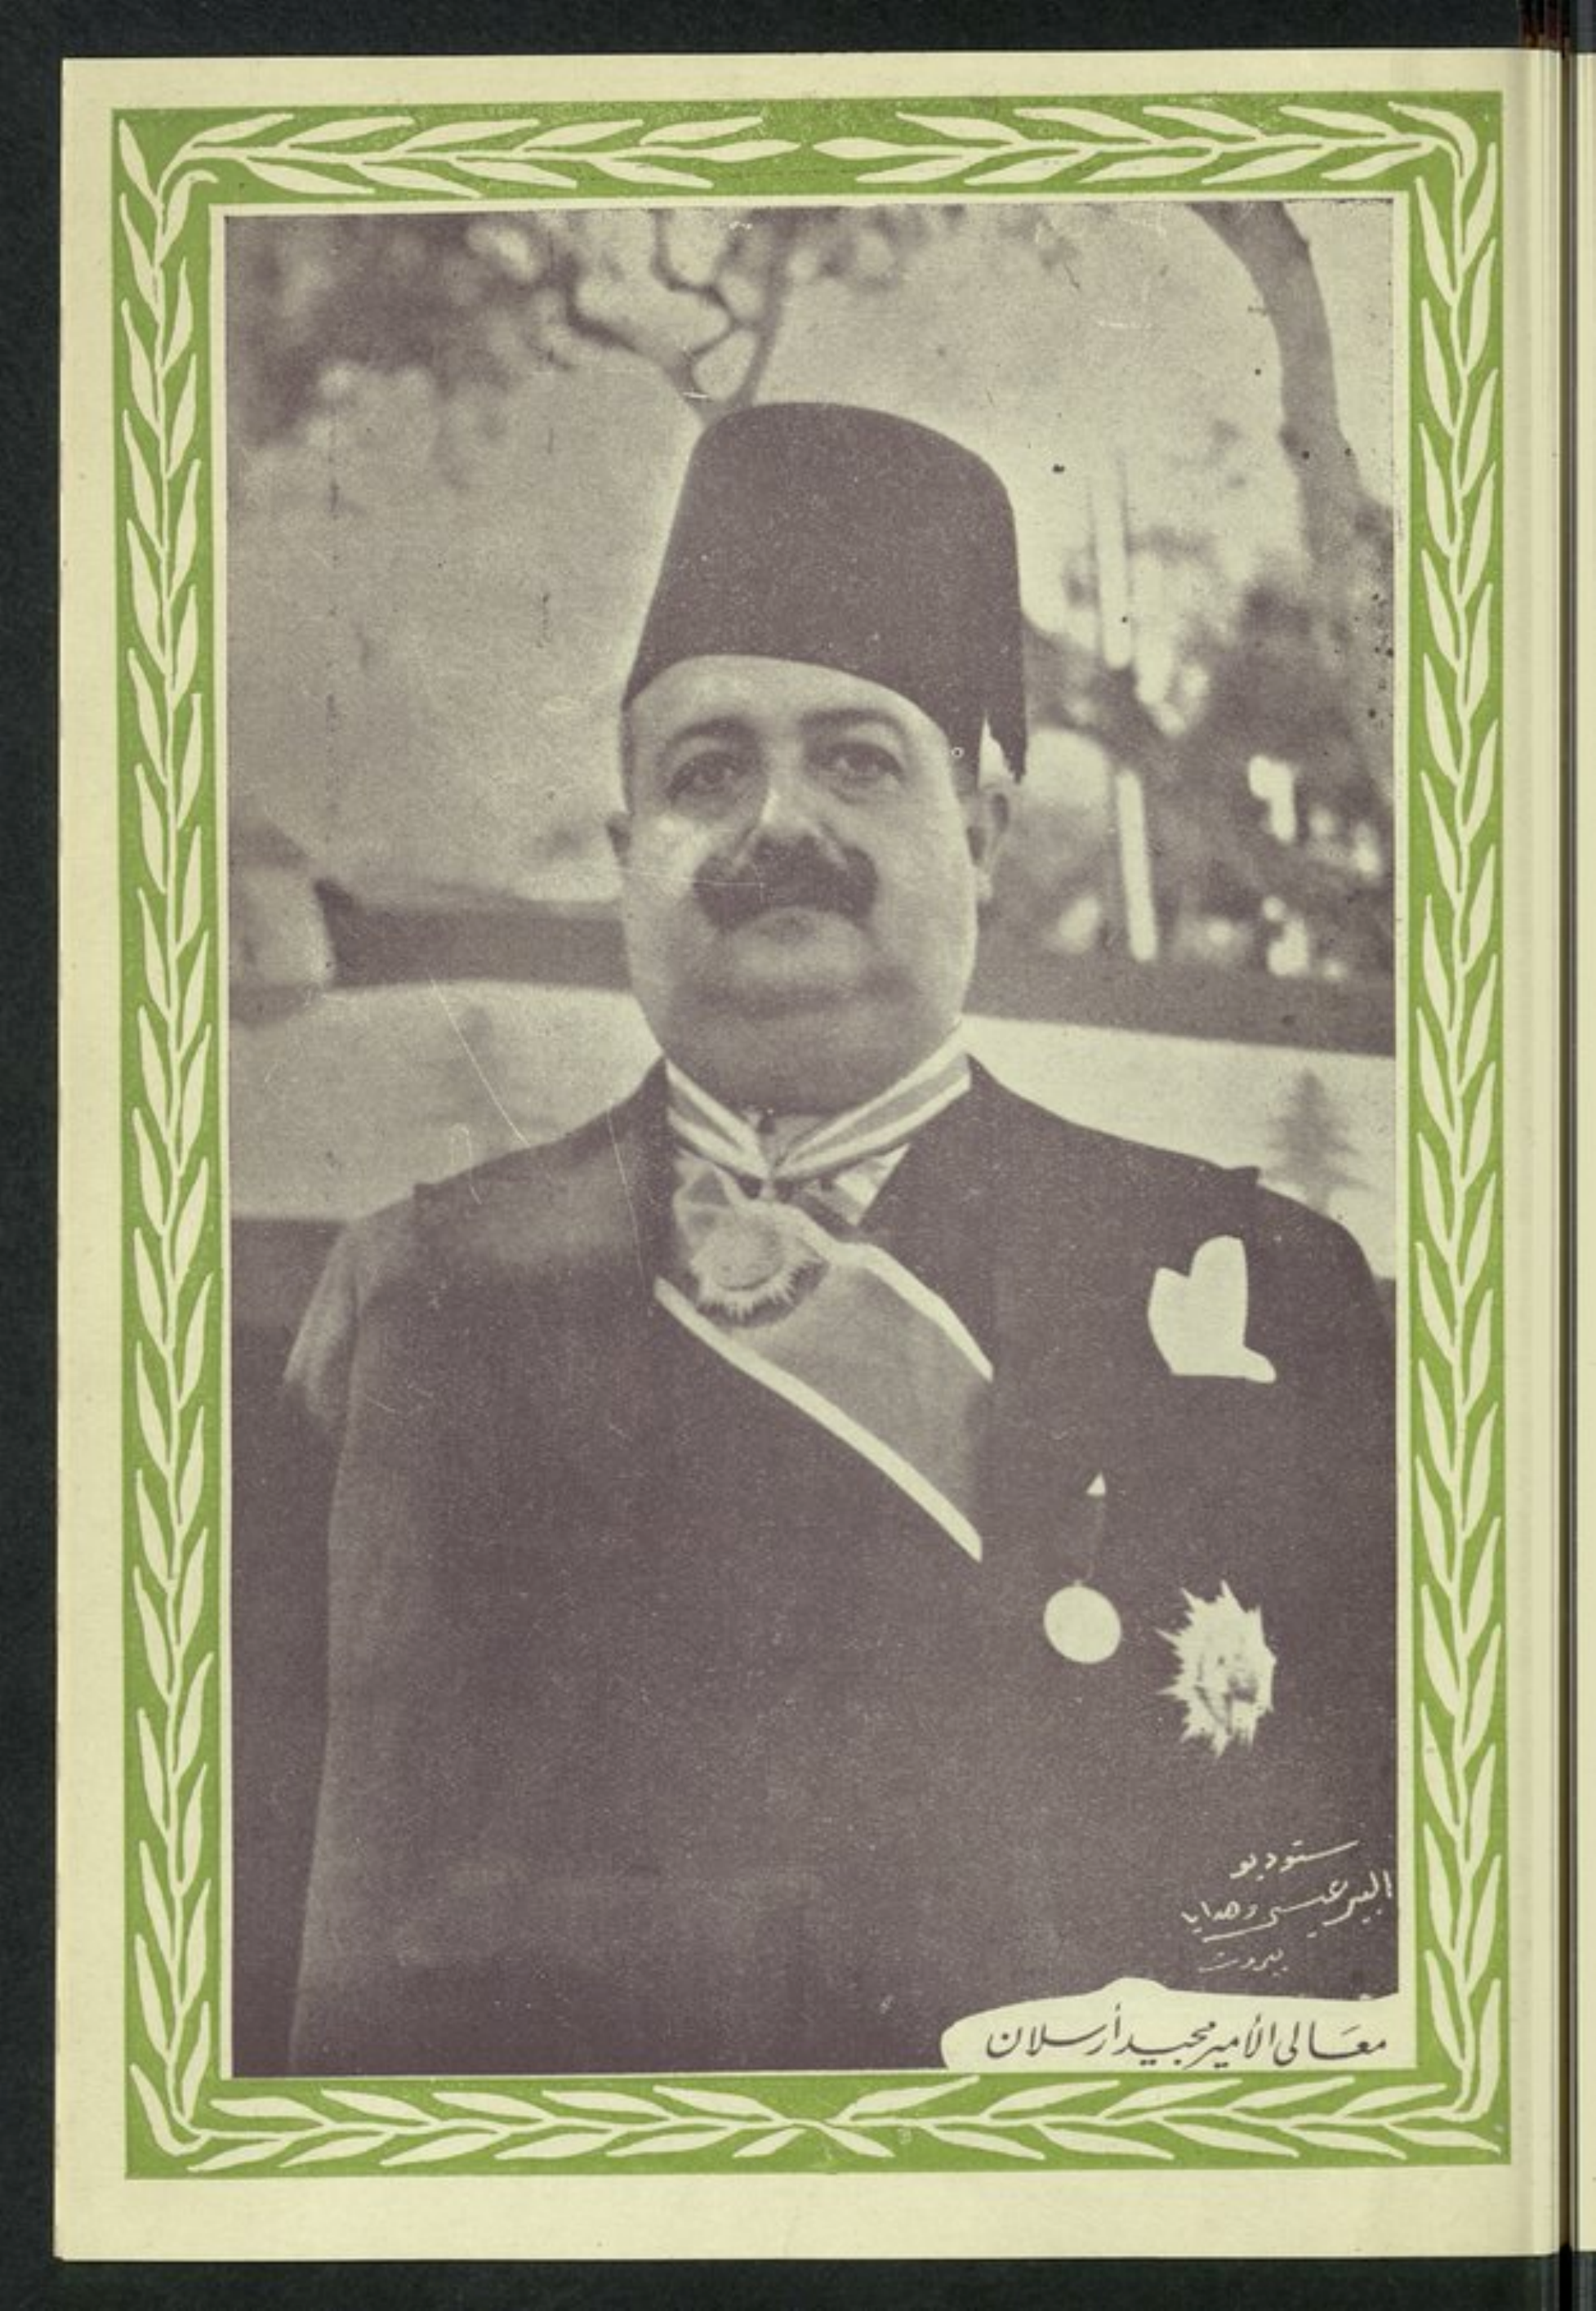 ستوديو
البير عيسى وهدايا
بيروت
معَالى الأمير مجيد أرسلان